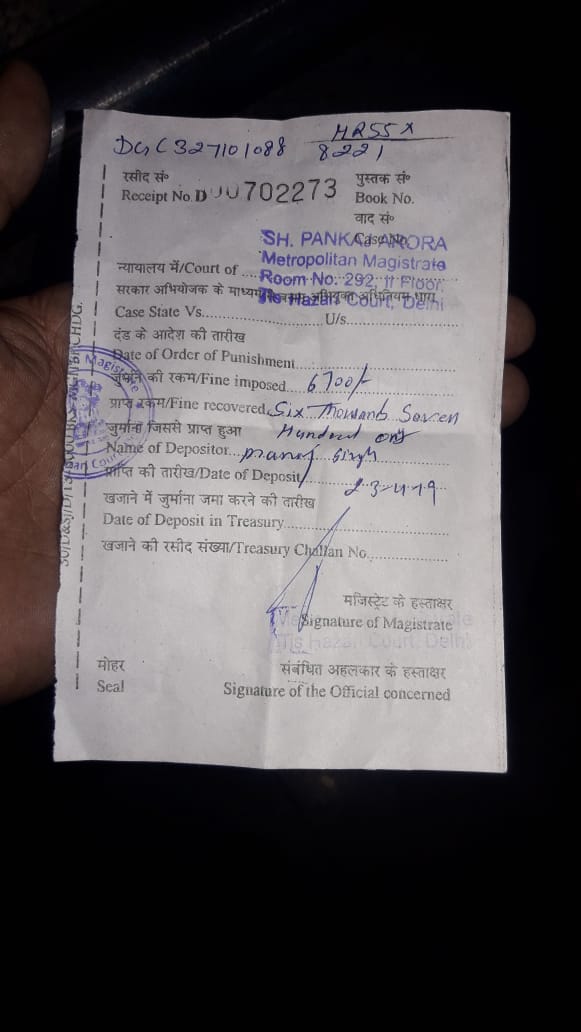 HR55X
DGC327101088 8221
रसीद सं० पुस्तक सं०
Receipt No. D 00702273 Book No.
वाद सं०
Case No.
SH. PANKAJ ARORA
Metropolitan Magistrate
न्यायालय में/Court of .... Room No. 292, II Floor,
सरकार अभियोजक के माध्यम
Tis Hazari Court, Delhi
Case State Vs. U/s
दंड के आदेश की तारीख
Date of Order of Punishment
जुर्माने की रकम/Fine imposed 6700/-
प्राप्त रकम/Fine recovered Six Thousand Seven
जुर्माना जिससे प्राप्त हुआ Hundred only
Name of Depositor Singh
प्राप्ति की तारीख/Date of Deposit 23-4-19
खजाने में जुर्माना जमा करने की तारीख
Date of Deposit in Treasury
खजाने की रसीद संख्या/Treasury Challan No.
मजिस्ट्रेट के हस्ताक्षर
Signature of Magistrate
Tis Hazari Court, Delhi
मोहर संबंधित अहलकार के हस्ताक्षर
Seal Signature of the Official concerned